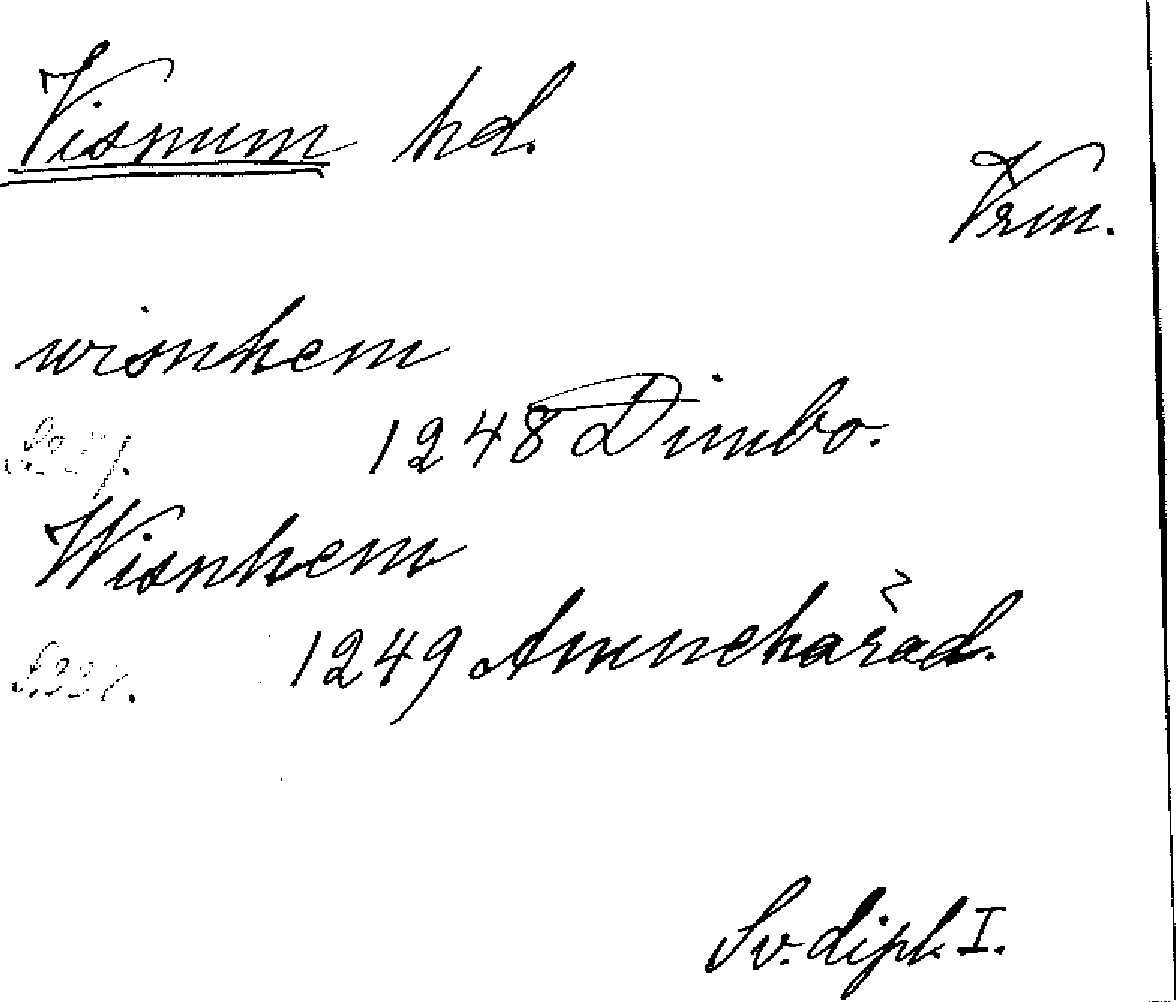 Visnum hd.
Vrm.
wisnhem
1248 Dimbo.
Wisnhem
1249 Amneharad.
S. 331.
Sv. dipl. I.